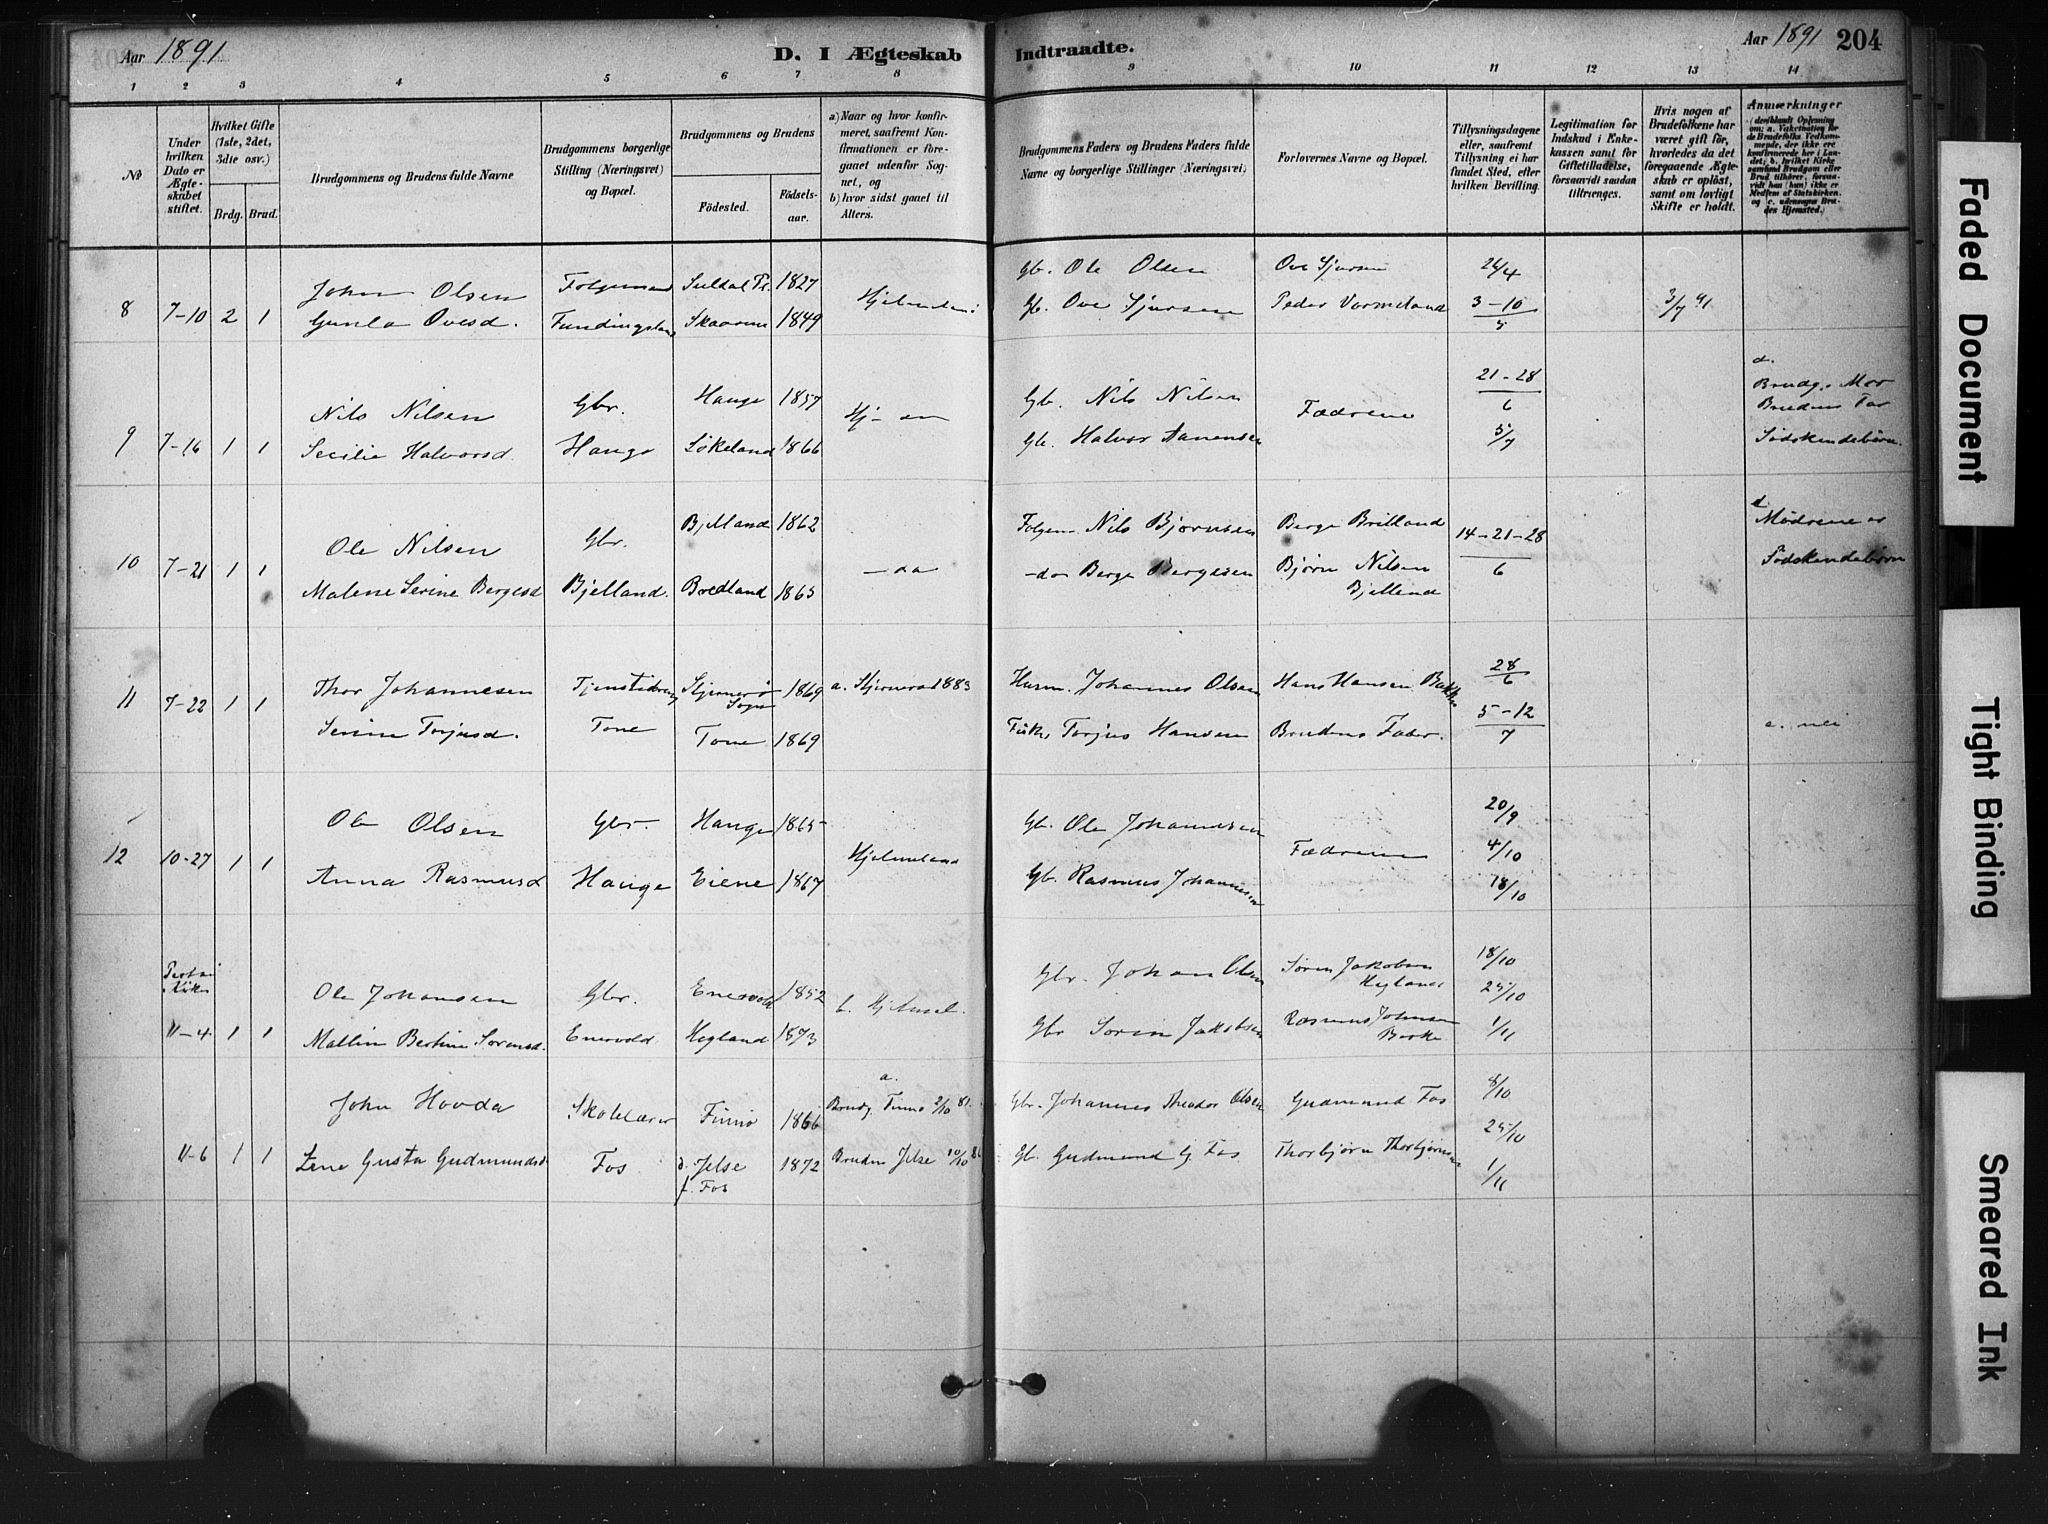 Aar 1891
D. I Ægteskab Indtraadte.
Aar 1891 204
1 2 3 4 5 6 7 8 9 10 11 12 13 14
No
Under hvilken Dato er Ægteskabet stiftet.
Hvilket Gifte (1ste, 2det, 3die osv.)
Brdg. Brud.
Brudgommens og Brudens fulde Navne
Brudgommens borgerlige Stilling (Næringsvei) og Bopæl.
Brudgommens og Brudens
Födested.
Födselsaar.
a) Naar og hvor konfirmeret, saafremt Konfirmationen er foregaaet udenfor Sognet, og
b) hvor sidst gaaet til Alters.
Brudgommens Faders og Brudens Faders fulde Navne og borgerlige Stillinger (Næringsvei)
Forlovernes Navne og Bopæl.
Tillysningsdagene eller, saafremt Tillysning ei har fundet Sted, efter hvilken Bevilling.
Legitimation for Indskud i Enkekassen samt for Giftetilladelse, forsaavidt saadan tiltrænges.
Hvis nogen af Brudefolkene har været gift för, hvorledes da det foregaaende Ægteskab er oplöst, samt om lovligt Skifte er holdt.
Anmærkninger
8 7-10 2 1
John Olsen
Gunla Ovesd.
Folgemand
Suldal Pr. 1827
Skaarun 1849
Gb. Ole Olsen
Gb. Ove Sjursen
Ove Sjursen
Peder Vormeland
24/4
3-10/5
3/7 91
9 7-16 1 1
Nils Nilsen
Secilie Halvorsd.
Gbr.
Hauge
Hauge 1857
Løkeland 1866
Hj-en
Gb. Nils Nilsen
Gb. Halvor Aanensen
Fædrene
21-28/6
5/7
d. Brudg. Mor
Brudens Far
Södskendebörn.
10 7-21 1 1
Ole Nilsen
Malene Serine Bergesd
Gbr.
Bjelland.
Bjelland 1862
Bredland 1865
-do
Folgem. Nils Bjørnsen
-do Berge Bergesen
Berge Bredland
Bjørn Nilsen
Bjelland
14-21-28/6
d Mödrene er
Södskendebörn
11 7-22 1 1
Thor Johannesen
Serine Torjusd.
Tjenstedreng
Tone
Stjernerö Sogn 1869
Tone 1869
a. Stjernerö 1883
Husm. Johannes Olsen
Torjus Hansen
Hans Hansen Bakke
Brudens Fader.
28/6
5-12/7
c. nei
12 10-27 1 1
Ole Olsen
Anna Rasmusd
Gbr.
Hauge
Hauge 1865
Eiene 1867
Hjelmeland
Gb. Ole Johannesen
Gb. Rasmus Johannesen
Fædrene
20/9
4/10
18/10
11-4 1 1
Ole Johansen
Mallin Bertine Sørensd.
Gbr.
Enesvold
Enesvold 1852
Hegland 1873
b. Hjelmel.
Gbr. Johan Olsen
Gbr Søren Jakobsen
Søren Jakobsen
Hegland
Rasmus Johnsen
18/10
25/10
1/11
11-6 1 1
John Hovda
Lene Gusta Gudmundsd
Skolelærer
Fos
Finnö 1866
d. Jelse 1872
f. Fos
a.
Brudg. Finnö 2/10 81.
Bruden Jelse 10/10 86
Gbr. Johannes Theodor Olsen
Gb. Gudmund Fos
Gudmund Fos
Thorbjørn Thorbjørnsen
8/10
25/10
1/11
Faded Document
Tight Binding
Smeared Ink